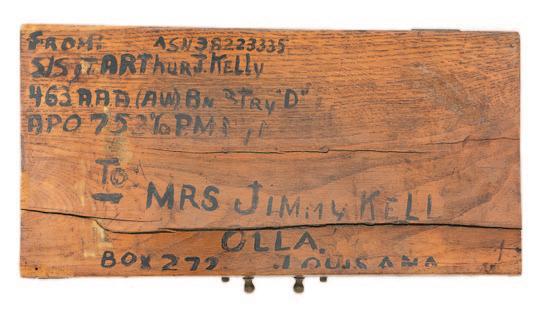 FROM: ASN38223335
S/SgT ARThur J. KElly
463 AAA (AW) Bn BTry "D"
APO 75 % PM
To
MRS JIMMy KELL
OLLA.
BOX 272 LOUISANA